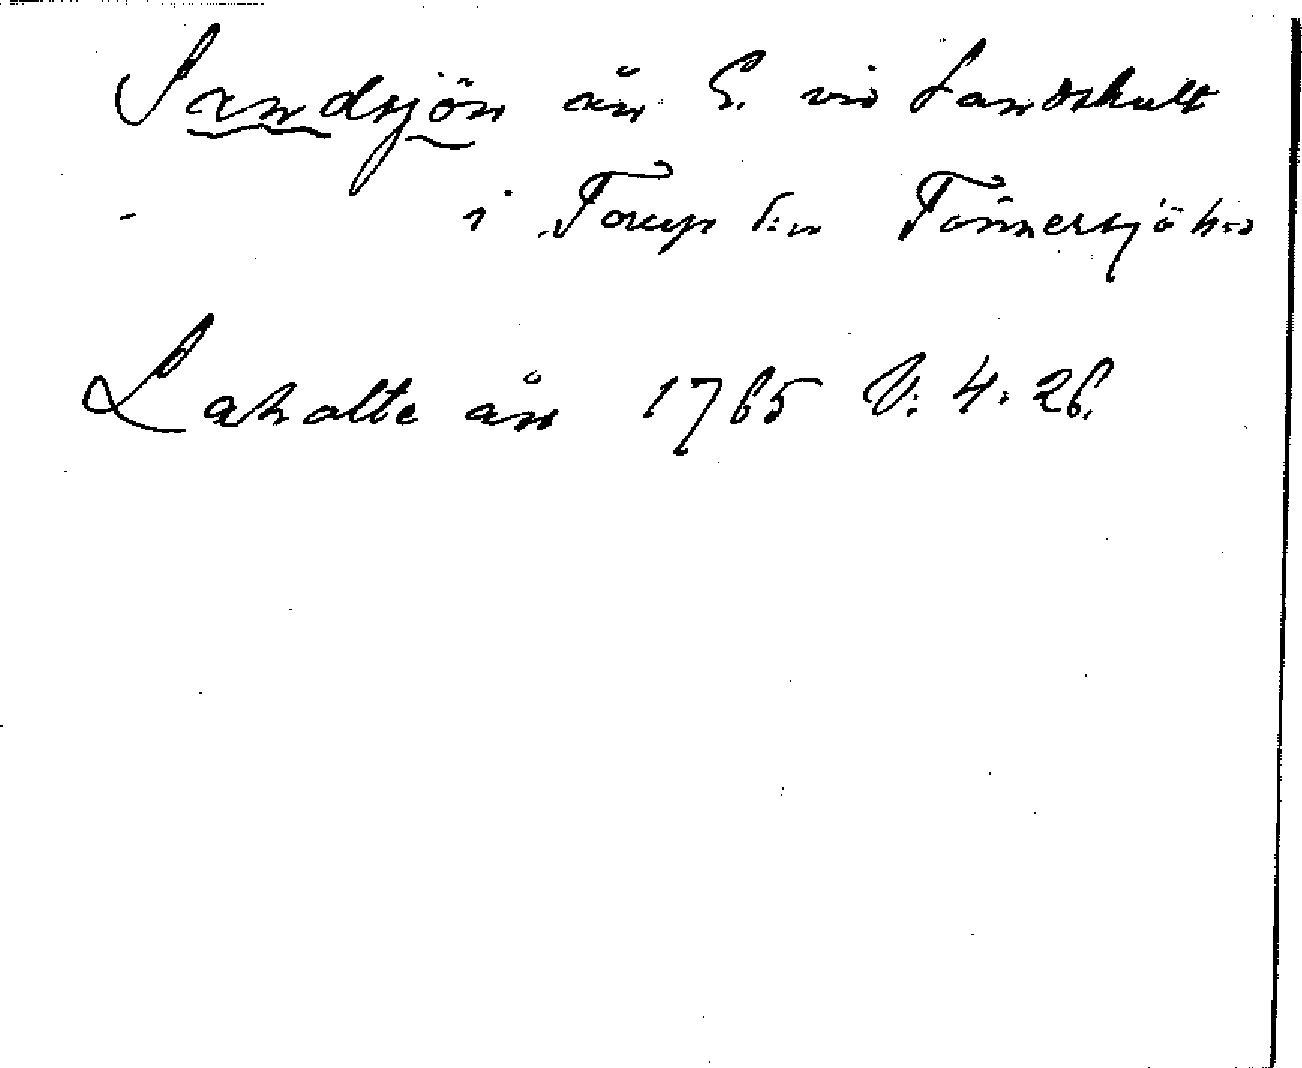 Sandsjön ån S. vid Landshult
- i Torup s:n Tönnersjö h:d
Laholte ån 1765 V: 4: 26.